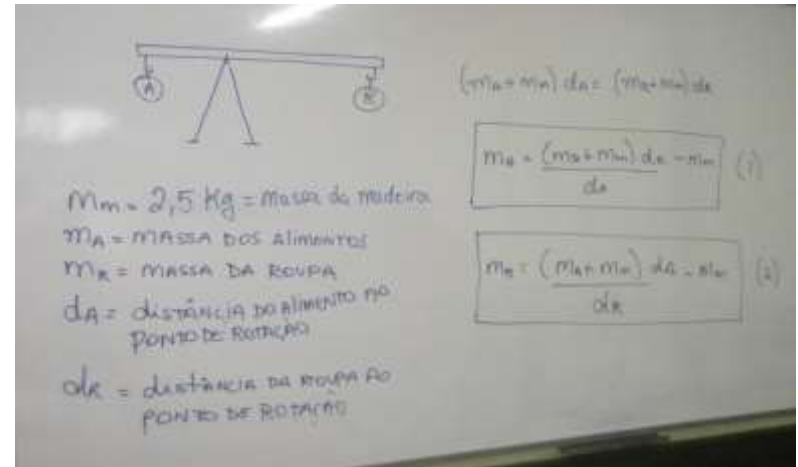 A R
mm = 2,5 Kg = massa da madeira
mA = MASSA DOS Alimentos
mR = MASSA DA ROUPA
dA = distância do Alimento ao
PONTO DE ROTAÇÃO
dR = distância da ROUPA AO
PONTO DE ROTAÇÃO
(mA + mm) dA = (mR + mm) dR
mA = (mR + mm) dR - mm (1)
dA
mR = (mA + mm) dA - mm (2)
dR